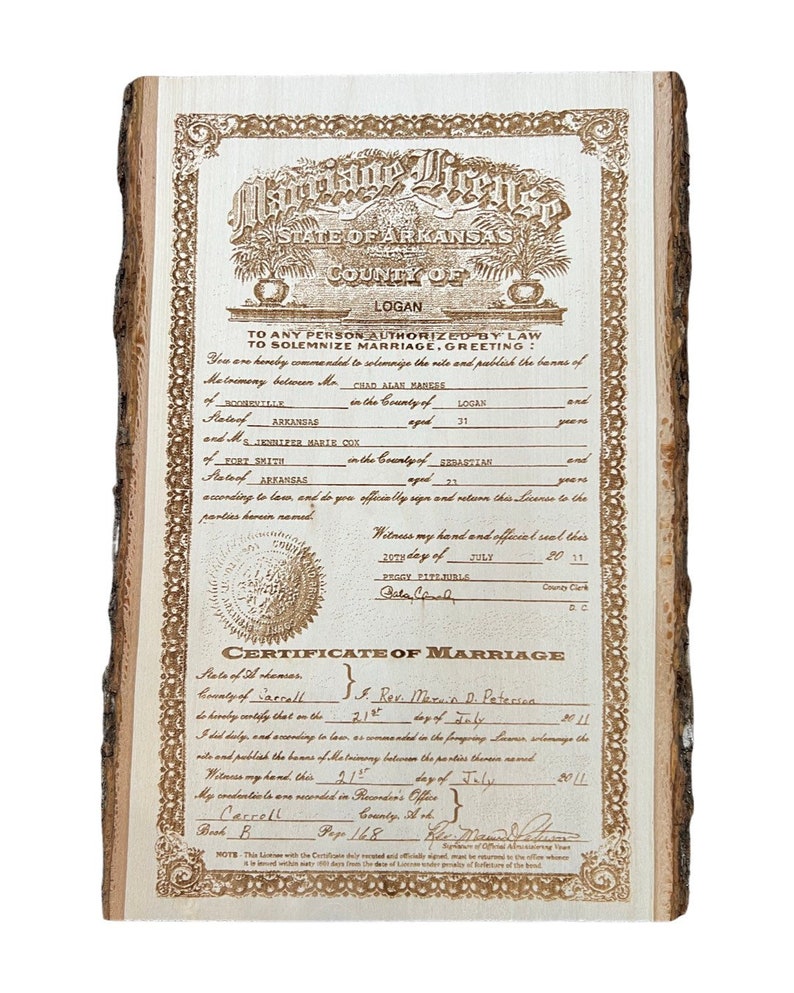 Marriage License
STATE OF ARKANSAS
COUNTY OF
LOGAN
TO ANY PERSON AUTHORIZED BY LAW
TO SOLEMNIZE MARRIAGE, GREETING:
You are hereby commanded to solemnize the rite and publish the banns of
Matrimony between Mr. CHAD ALAN MANESS
of BOONEVILLE in the County of LOGAN and
State of ARKANSAS aged 31 years
and MS JENNIFER MARIE COX
of FORT SMITH in the County of SEBASTIAN and
State of ARKANSAS aged 23 years
according to law, and do you officially sign and return this License to the
parties herein named.
Witness my hand and official seal this
20TH day of JULY 20 11
PEGGY FITZJURLS
County Clerk
D. C.
CERTIFICATE OF MARRIAGE
State of Arkansas,
County of Carroll } I, Rev. Marvin D. Peterson
do hereby certify that on the 21st day of July 2011
I did duly, and according to law, as commanded in the foregoing License, solemnize the
rite and publish the banns of Matrimony between the parties therein named
Witness my hand, this 21st day of July 2011
My credentials are recorded in Recorder's Office
Carroll County, Ark. }
Book B Page 168 Rev. Marvin D. Peterson
Signature of Official Administering Vows
NOTE - This License with the Certificate duly excuted and officially signed, must be returned to the office whence
it is issued within sixty (60) days from the date of License under penalty of forfeiture of the bond.